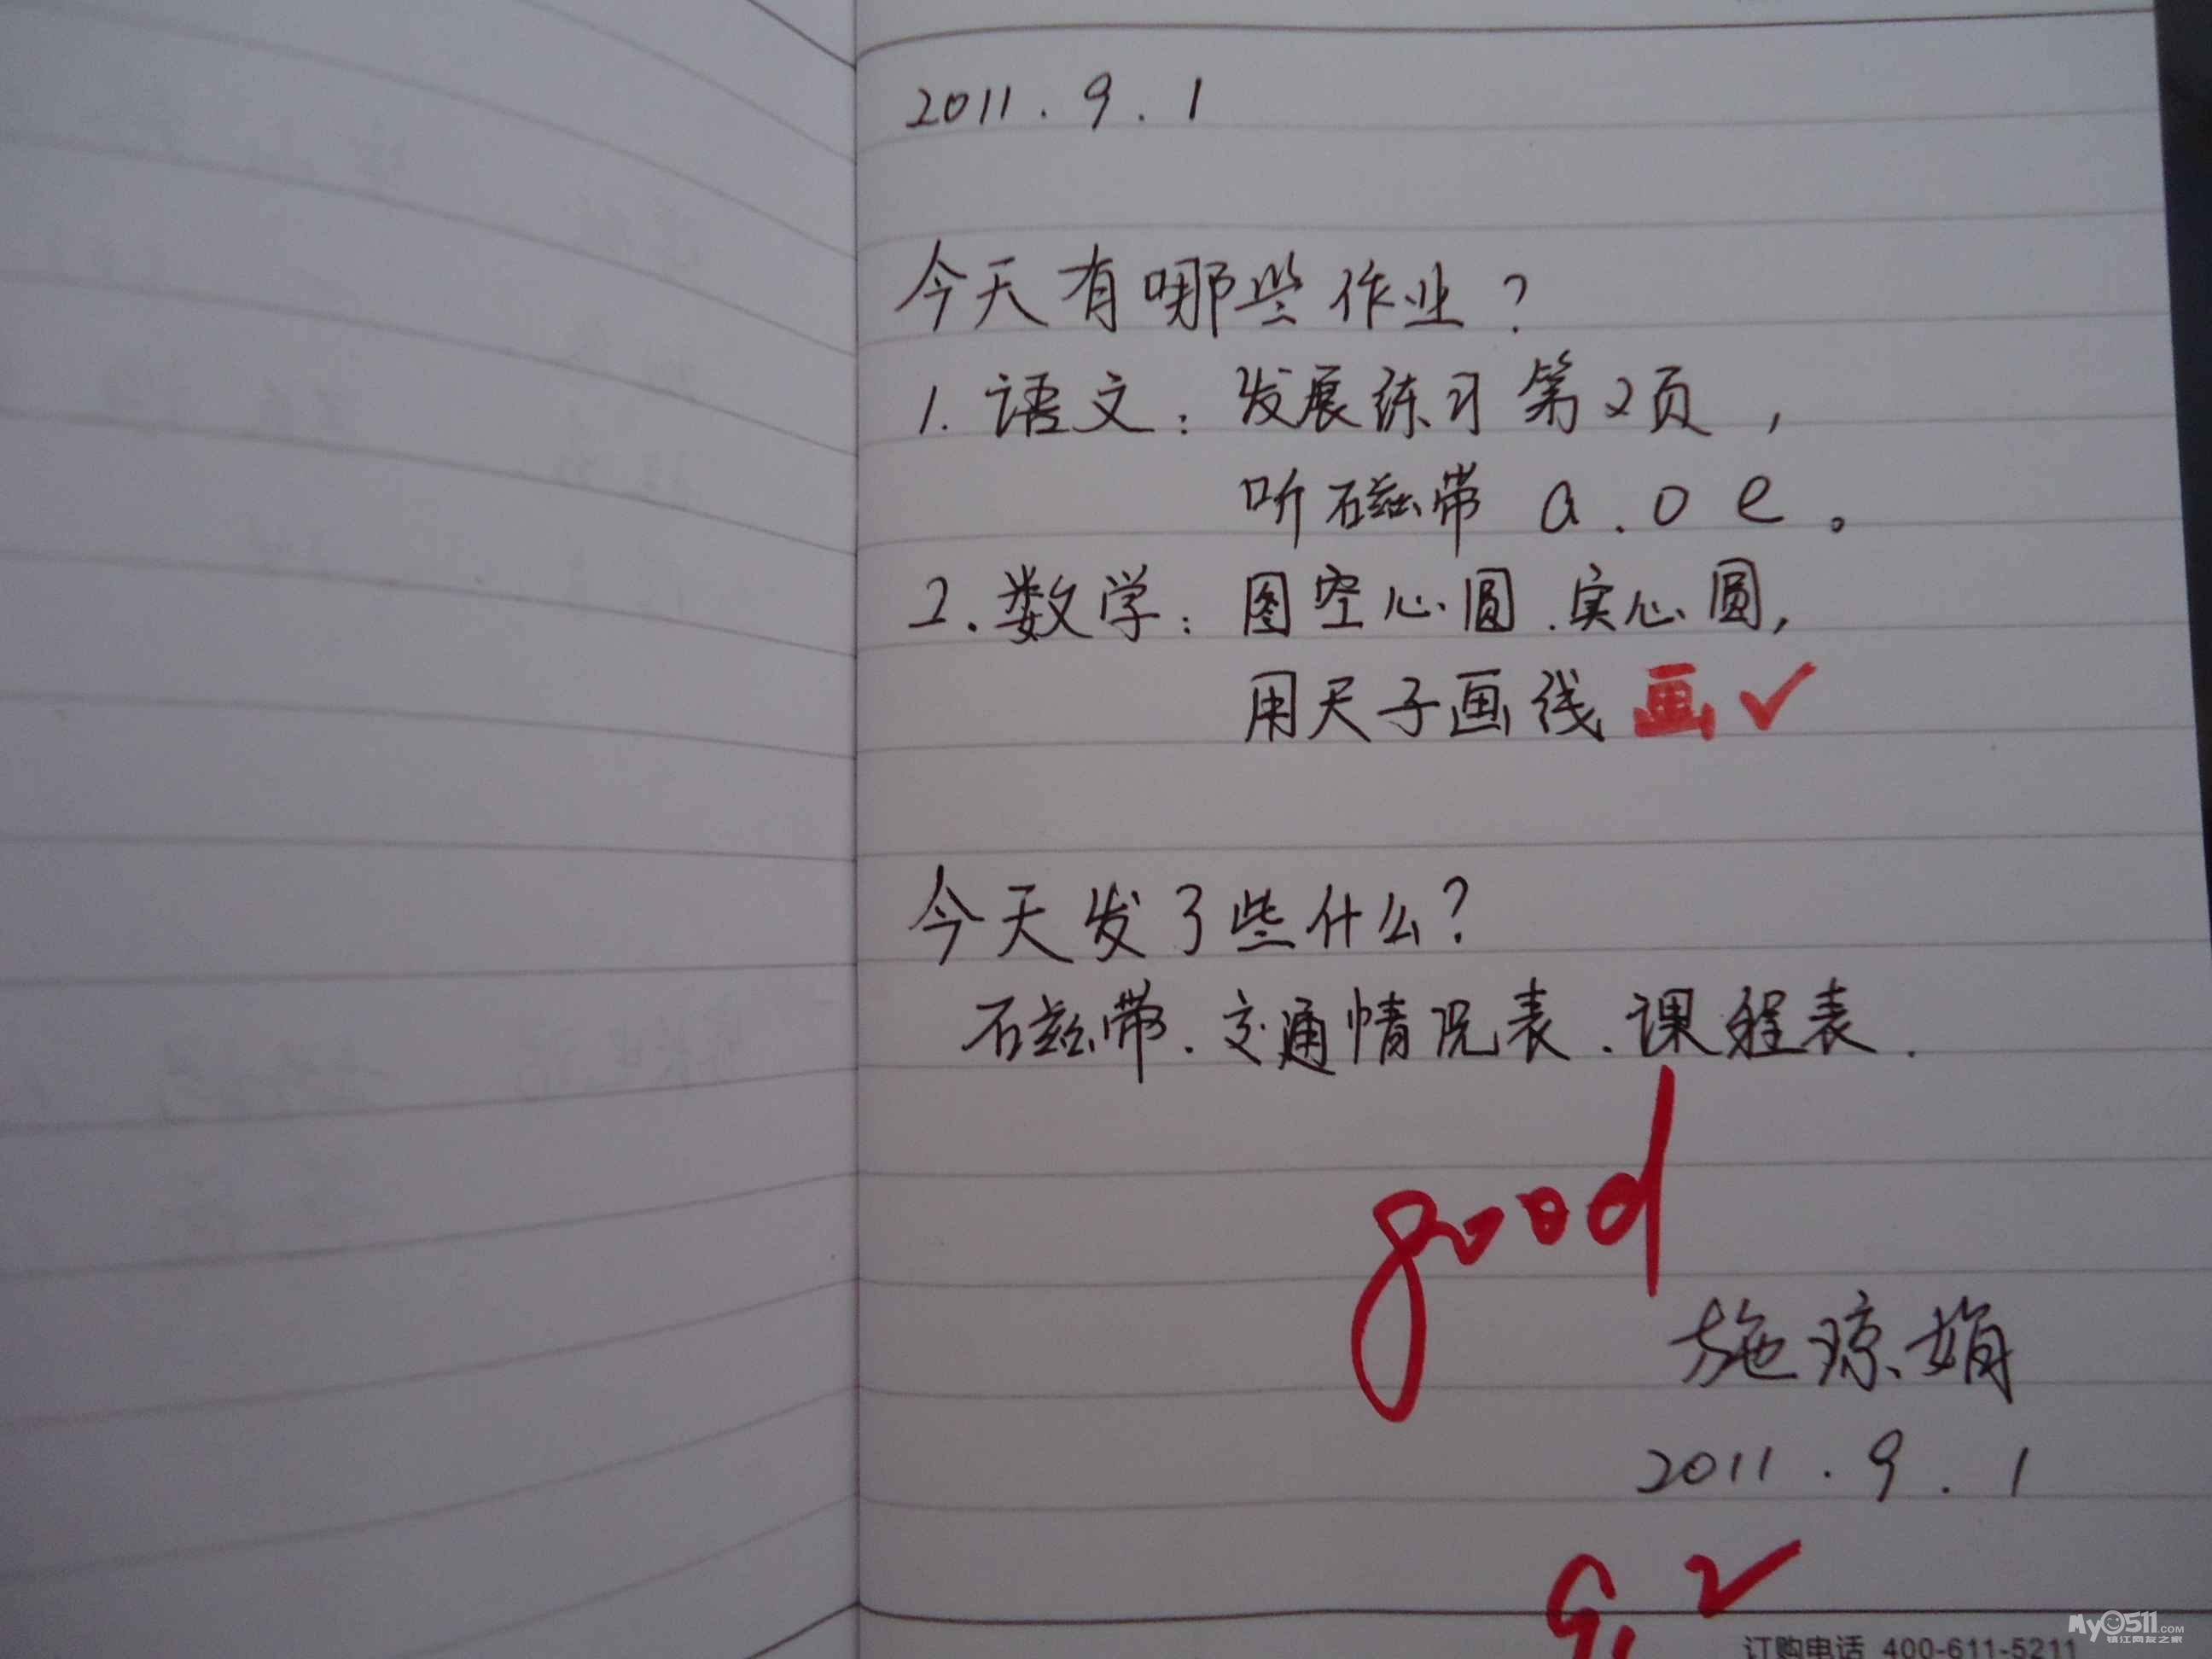 2011.9.1
今天有哪些作业?
1.语文:发展练习第2页,
听磁带 a.o e。
2.数学:图空心圆.实心圆,
用尺子画线 画✓
今天发了些什么?
磁带.交通情况表.课程表.
good
施琼娟
2011.9.1
9.2
订购电话 400-611-5211
My0511.COM
镇江网友之家